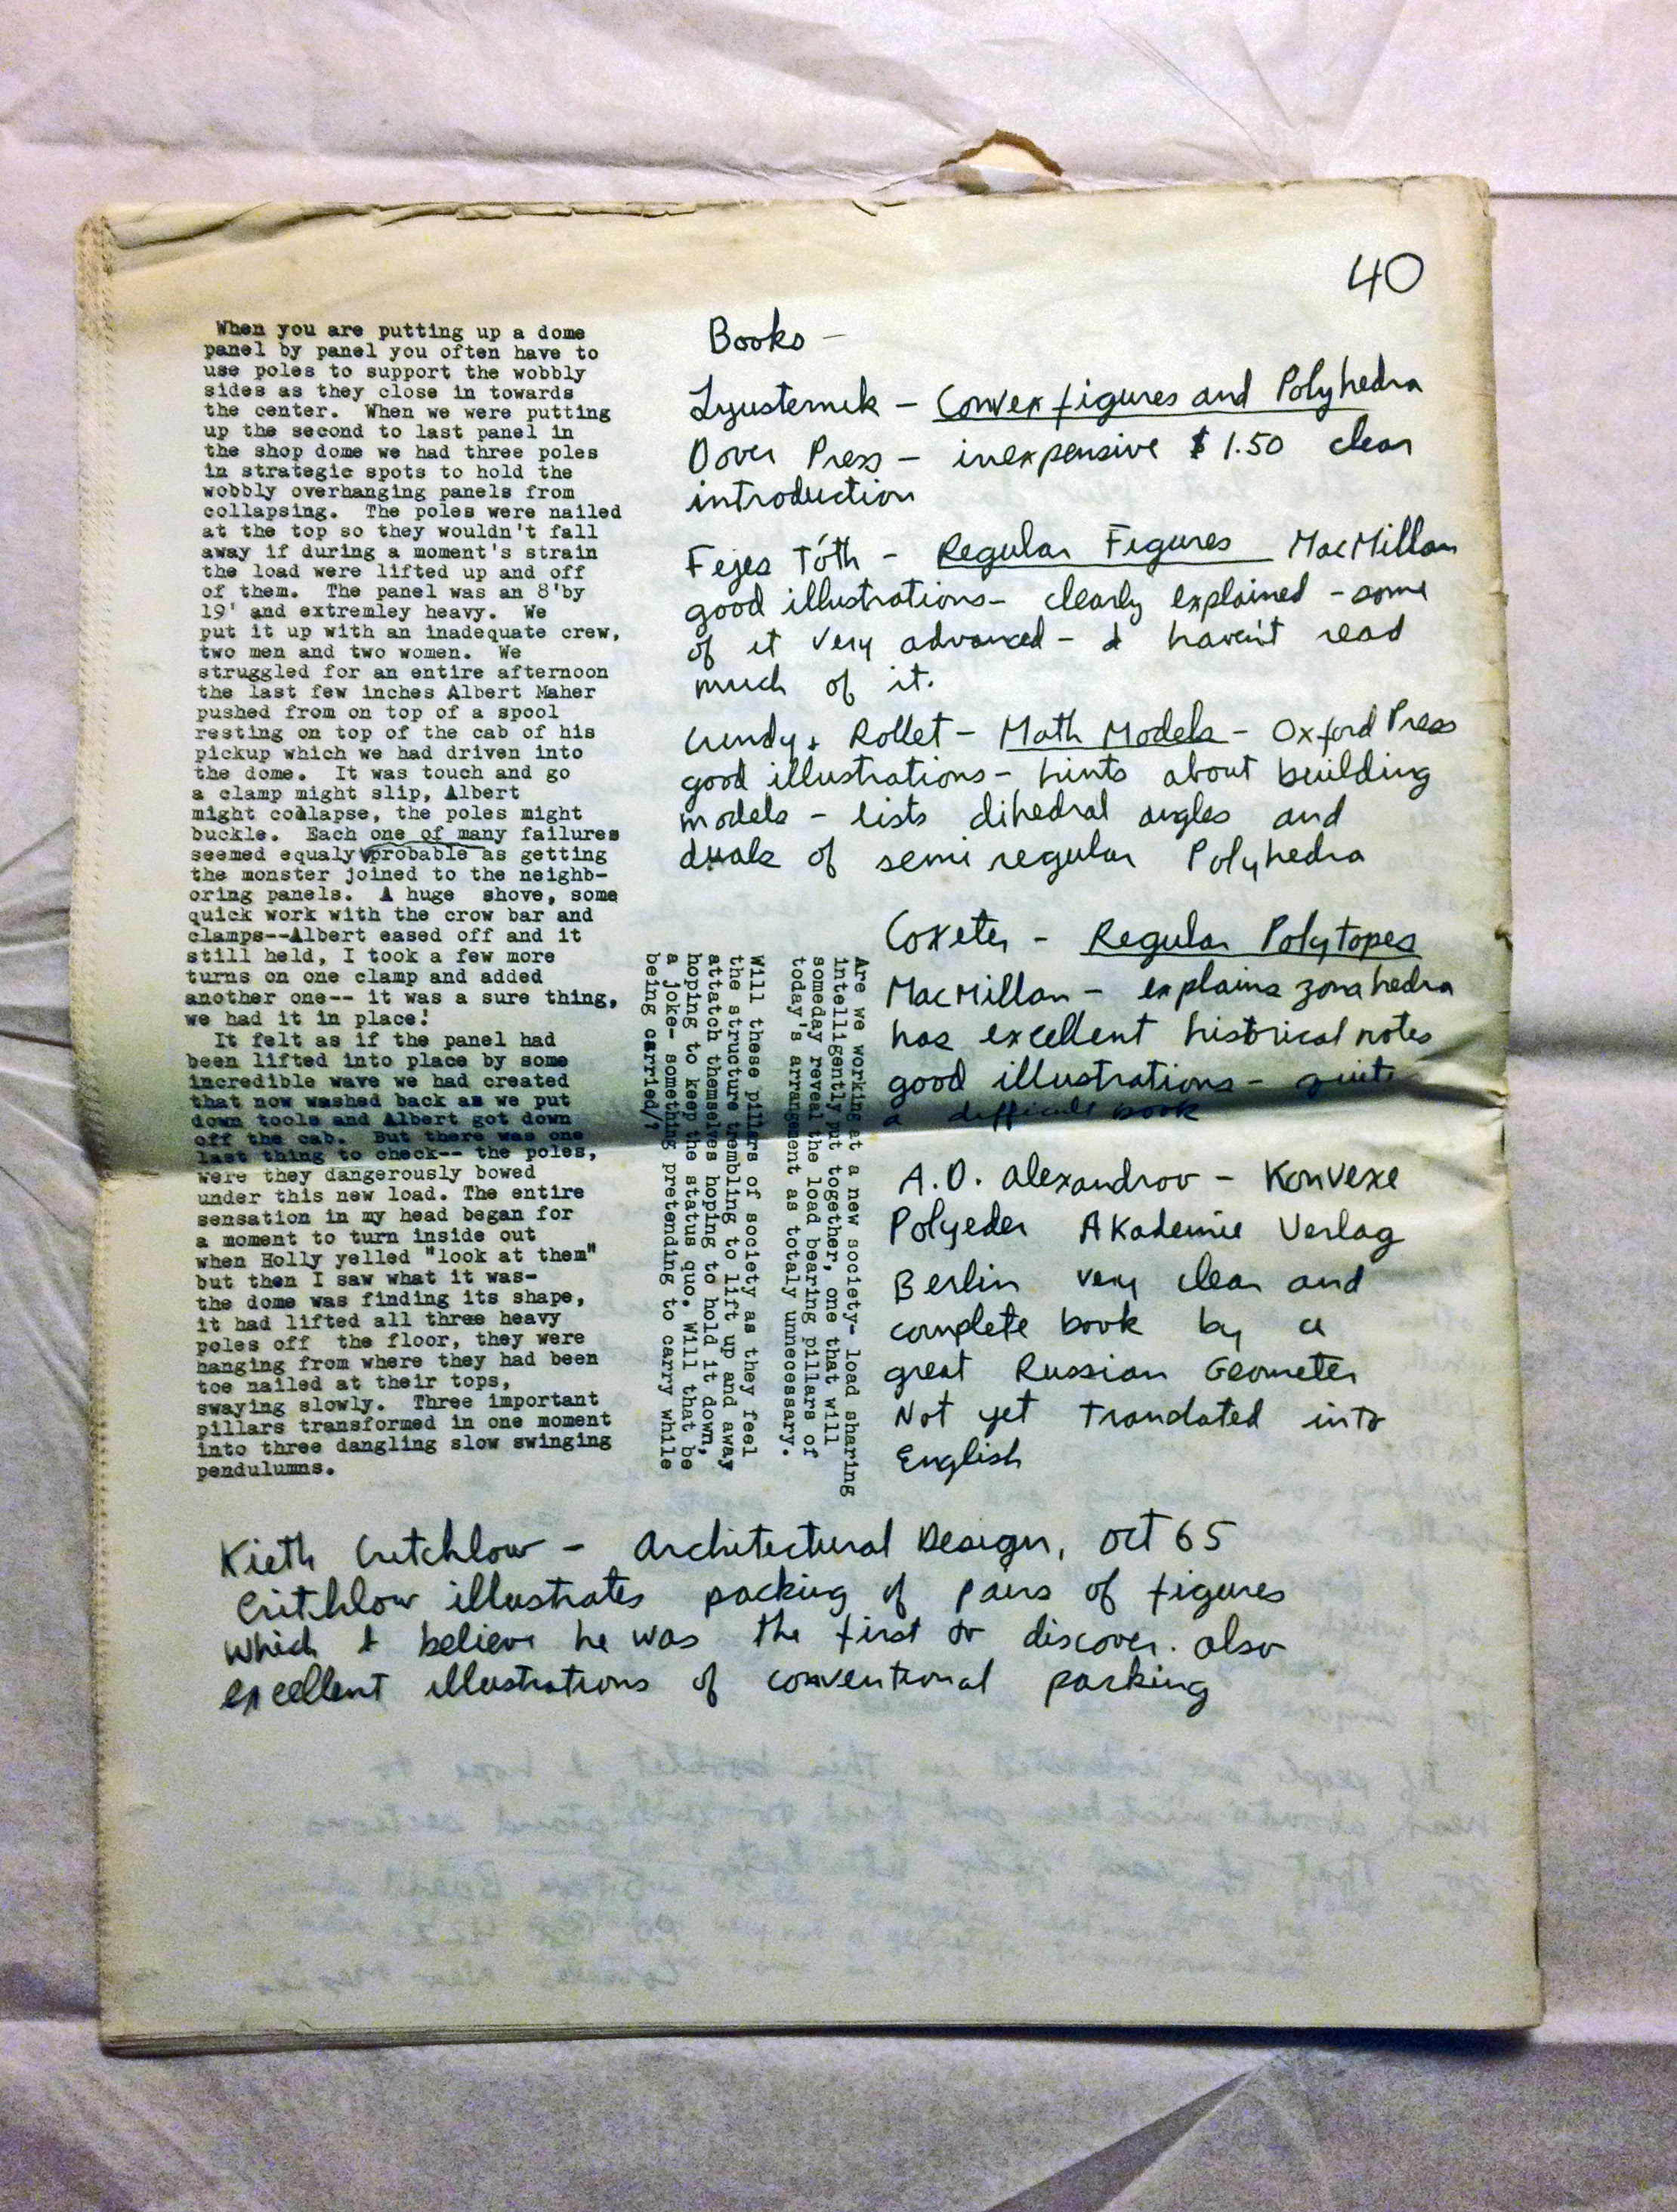 40
When you are putting up a dome
panel by panel you often have to
use poles to support the wobbly
sides as they close in towards
the center.  When we were putting
up the second to last panel in
the shop dome we had three poles
in strategic spots to hold the
wobbly overhanging panels from
collapsing.  The poles were nailed
at the top so they wouldn't fall
away if during a moment's strain
the load were lifted up and off
of them.  The panel was an 8'by
19' and extremley heavy.  We
put it up with an inadequate crew,
two men and two women.  We
struggled for an entire afternoon
the last few inches Albert Maher
pushed from on top of a spool
resting on top of the cab of his
pickup which we had driven into
the dome.  It was touch and go
a clamp might slip, Albert
might collapse, the poles might
buckle.  Each one of many failures
seemed equaly probable as getting
the monster joined to the neighb-
oring panels.  A huge  shove, some
quick work with the crow bar and
clamps--Albert eased off and it
still held, I took a few more
turns on one clamp and added
another one-- it was a sure thing,
we had it in place!
It felt as if the panel had
been lifted into place by some
incredible wave we had created
that now washed back as we put
down tools and Albert got down
off the cab.  But there was one
last thing to check-- the poles,
were they dangerously bowed
under this new load. The entire
sensation in my head began for
a moment to turn inside out
when Holly yelled "look at them"
but then I saw what it was-
the dome was finding its shape,
it had lifted all three heavy
poles off  the floor, they were
hanging from where they had been
toe nailed at their tops,
swaying slowly.  Three important
pillars transformed in one moment
into three dangling slow swinging
pendulumns.
Are we working at a new society- load sharing
intelligently put together, one that will
someday reveal the load bearing pillars of
today's arrangement as totaly unnecessary.
Will these pillars of society as they feel
the structure trembling to lift up and away
attatch themselves hoping to hold it down,
hoping to keep the status quo. Will that be
a joke- something pretending to carry while
being carried/?
Books -
Lyusternik - Convex figures and Polyhedra
Dover Press - inexpensive $1.50 clear
introduction
Fejes Tóth - Regular Figures MacMillan
good illustrations- clearly explained - some
of it very advanced - I haven't read
much of it.
Cundy + Rollet - Math Models - Oxford Press
good illustrations - hints about building
models - lists dihedral angles and
duals of semi regular Polyhedra
Coxeter - Regular Polytopes
MacMillan - explains zonahedra
has excellent historical notes
good illustrations - quite
a difficult book
A.D. Alexandrov - Konvexe
Polyeder Akademie Verlag
Berlin very clear and
complete book by a
great Russian Geometer
Not yet translated into
English
Kieth Critchlow - Architectural Design, Oct 65
Critchlow illustrates packing of pairs of figures
which I believe he was the first to discover. also
excellent illustrations of conventional packing